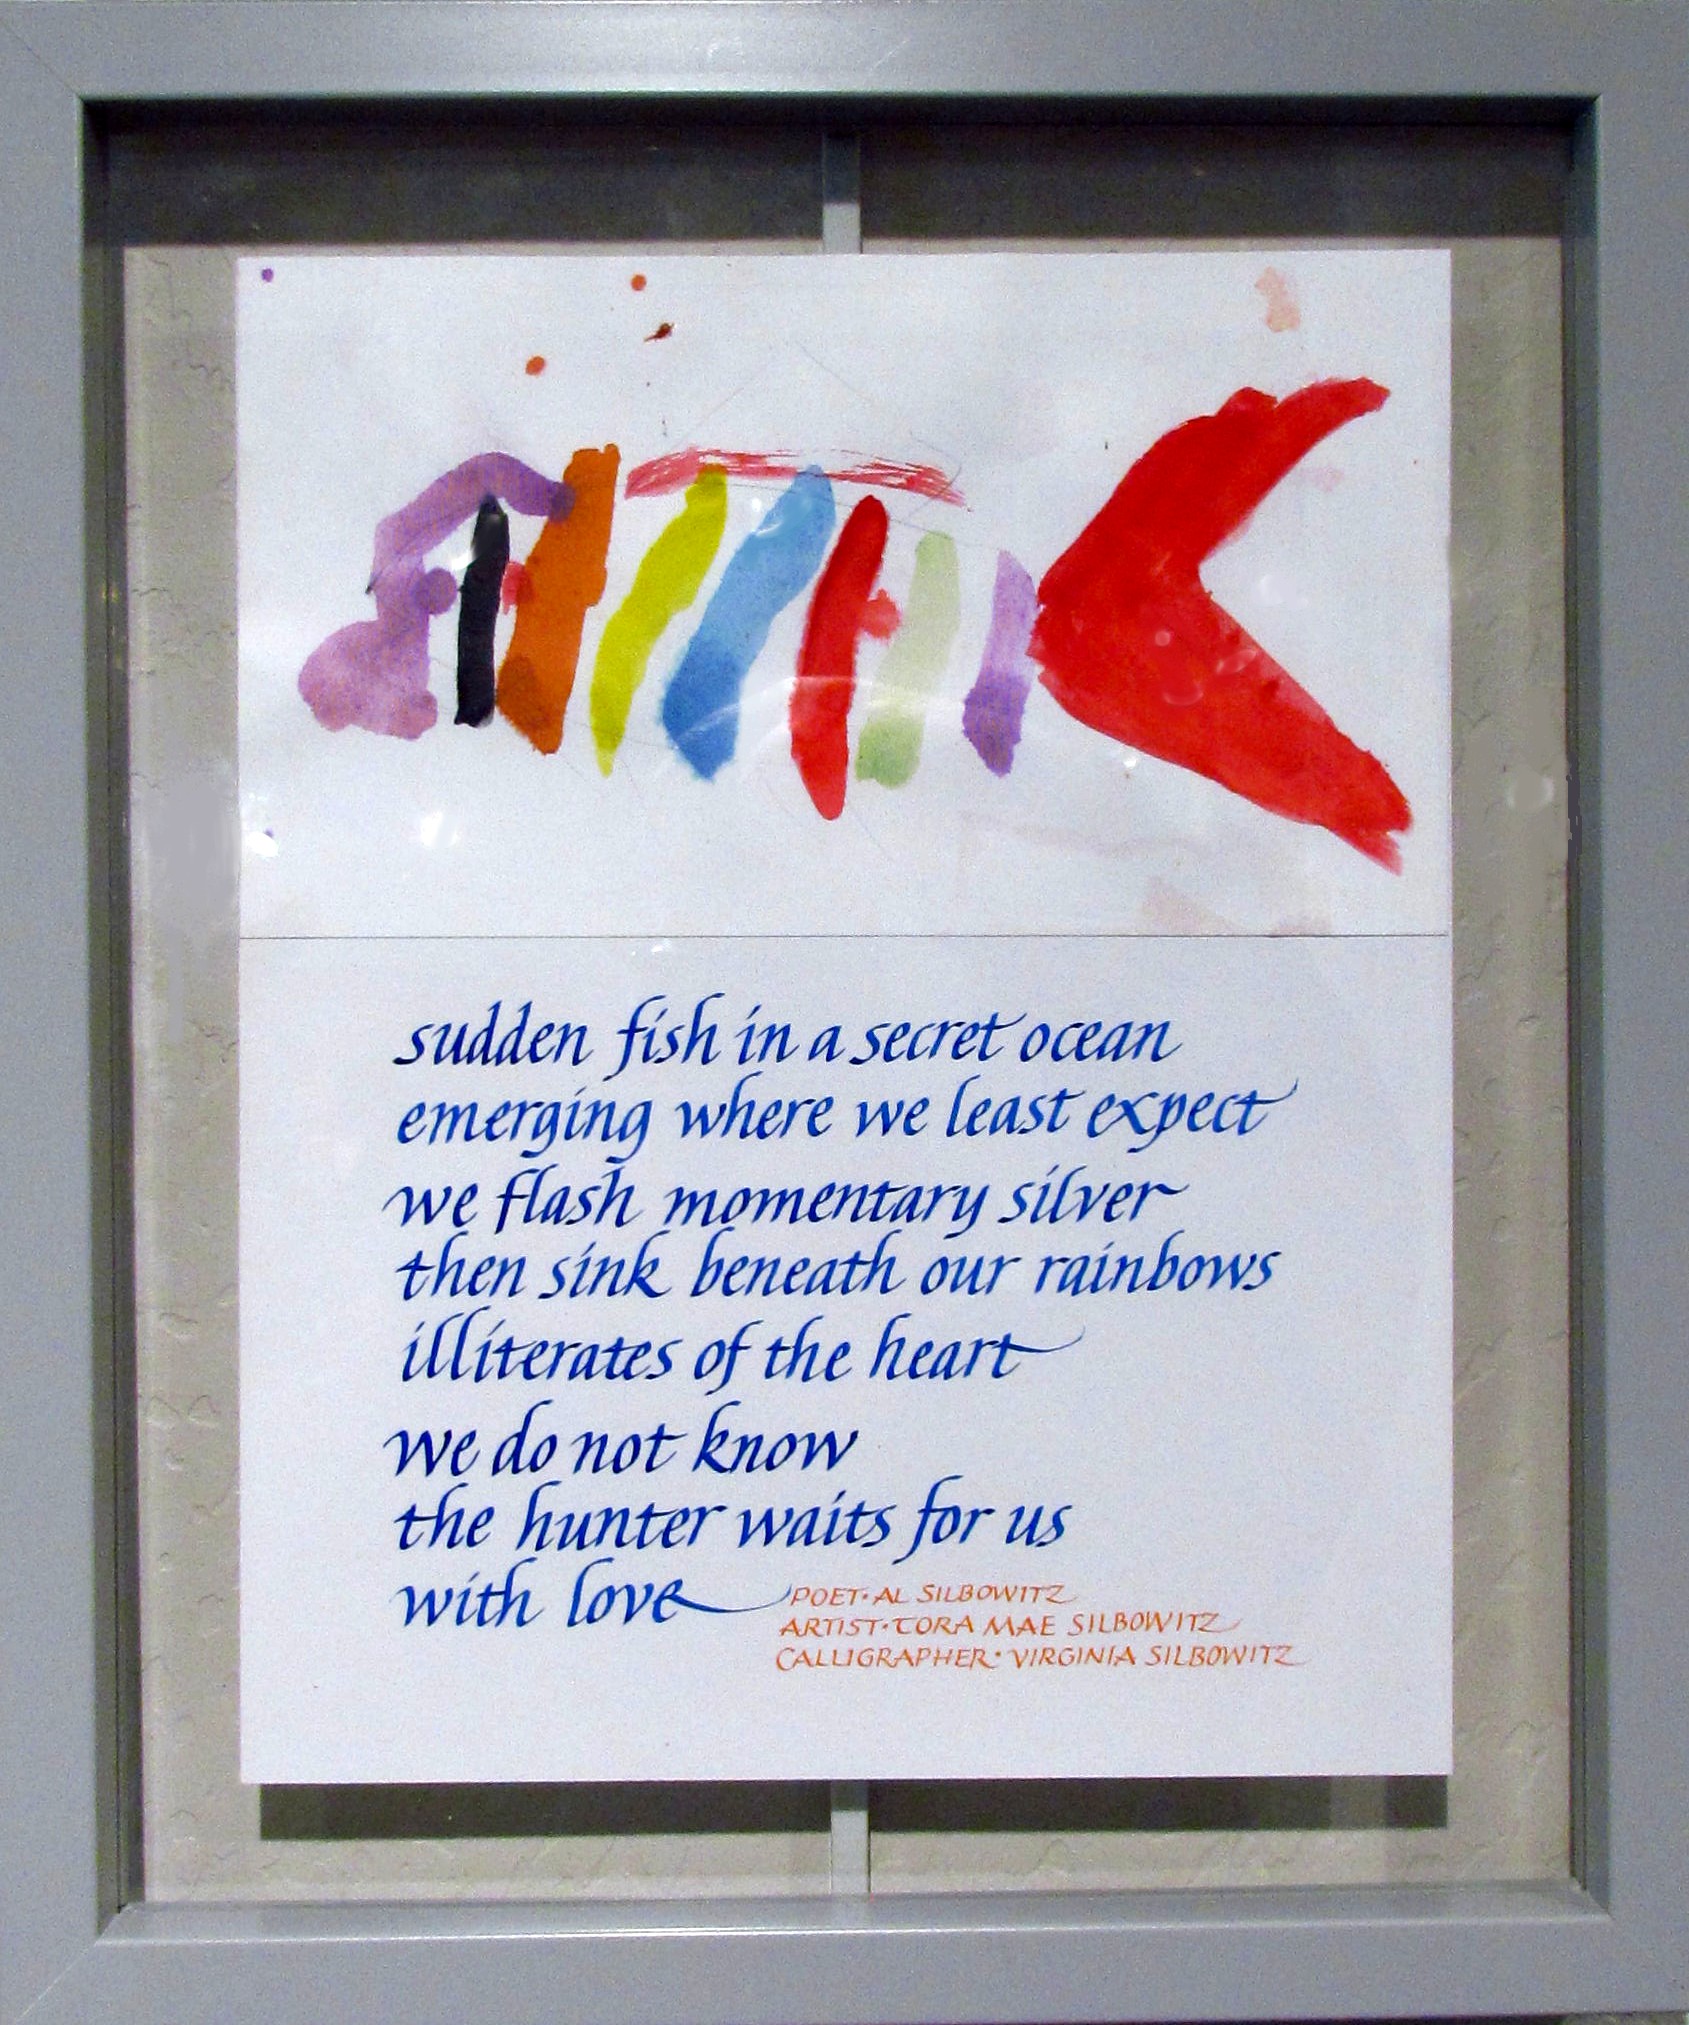 sudden fish in a secret ocean
emerging where we least expect
we flash momentary silver
then sink beneath our rainbows
illiterates of the heart
we do not know
the hunter waits for us
with love
POET·AL SILBOWITZ
ARTIST·TORA MAE SILBOWITZ
CALLIGRAPHER·VIRGINIA SILBOWITZ